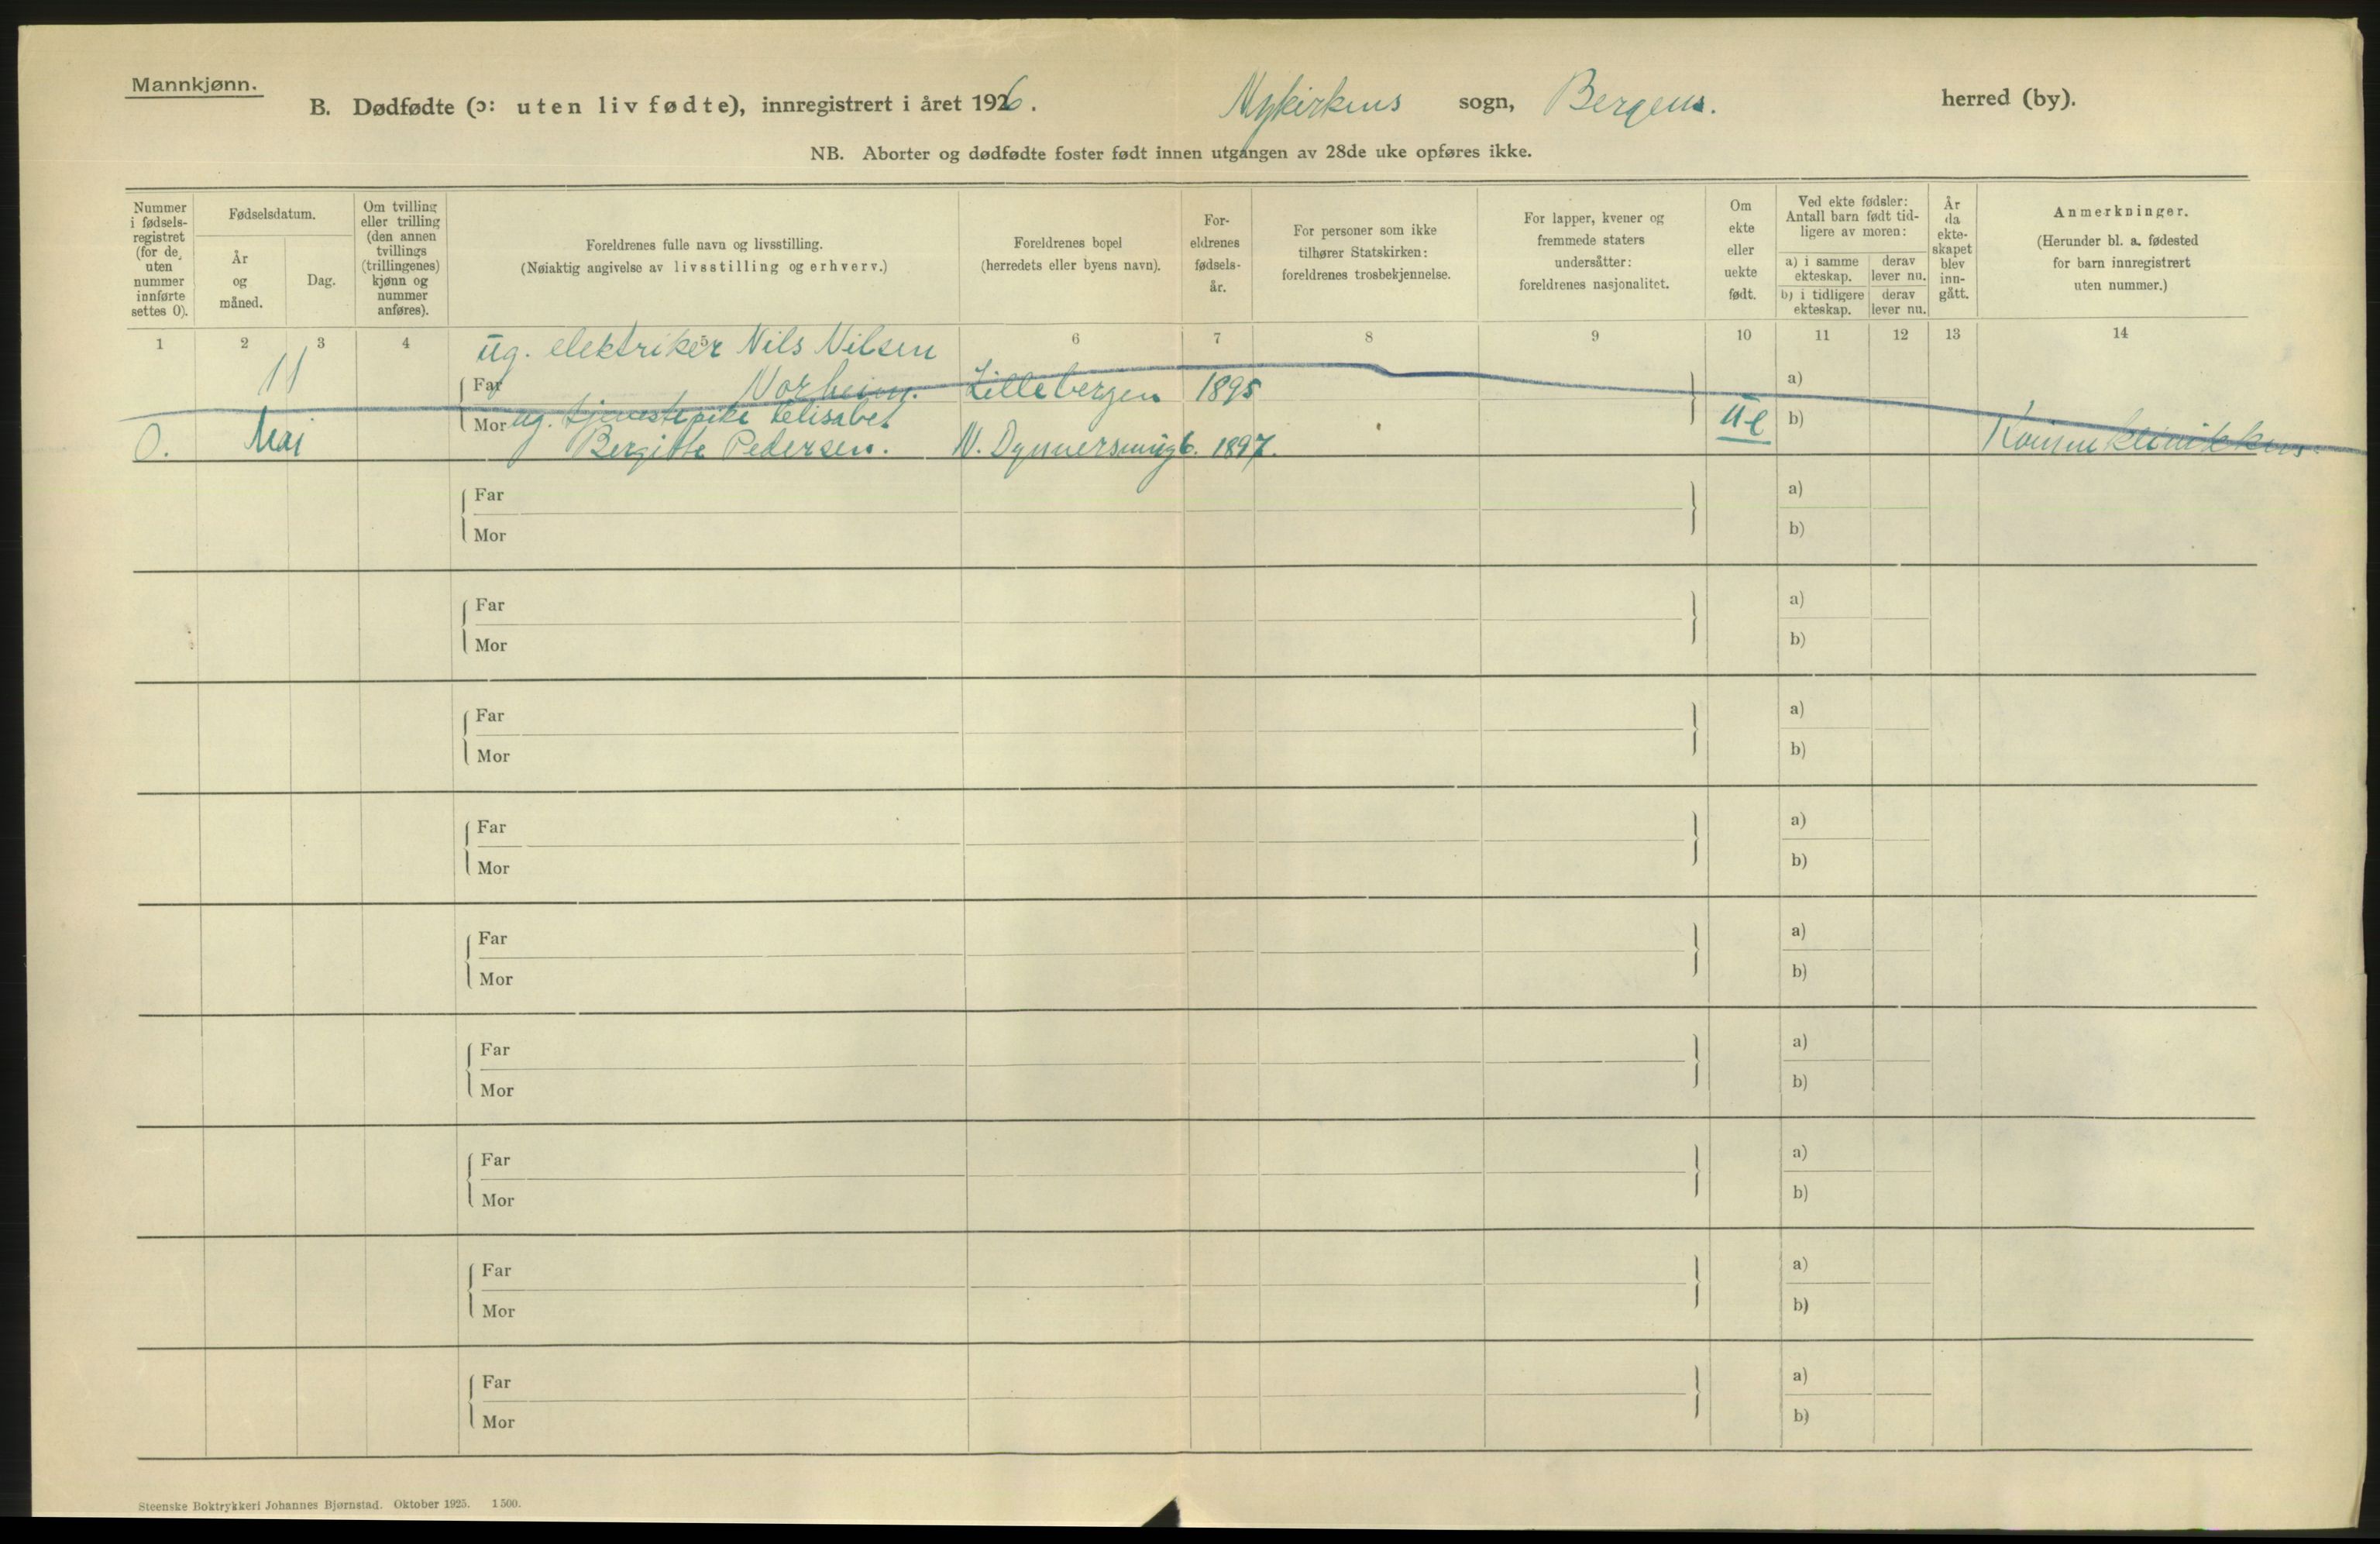 Mannkjønn.
B. Dødfødte (ɔ: uten liv fødte), innregistrert i året 1926. Nykirkens sogn, Bergens. herred (by).
NB. Aborter og dødfødte foster født innen utgangen av 28de uke opføres ikke.
Nummer i fødsels-registret (for de uten nummer innførte settes 0).
Fødselsdatum.
År og måned.
Dag.
Om tvilling eller trilling (den annen tvillings (trillingenes) kjønn og nummer anføres).
Foreldrenes fulle navn og livsstilling.
(Nøiaktig angivelse av livsstilling og erhverv.)
Foreldrenes bopel
(herredets eller byens navn).
For-eldrenes fødsels-år.
For personer som ikke tilhører Statskirken: foreldrenes trosbekjennelse.
For lapper, kvener og fremmede staters undersåtter: foreldrenes nasjonalitet.
Om ekte eller uekte født.
Ved ekte fødsler: Antall barn født tid-ligere av moren:
a) i samme ekteskap. derav lever nu.
b) i tidligere ekteskap. derav lever nu.
År da ekte-skapet blev inn-gått.
Anmerkninger.
(Herunder bl. a. fødested for barn innregistrert uten nummer.)
1 2 3 4 5 6 7 8 9 10 11 12 13 14
ug. elektriker Nils Nilsen
11 Far Norheim. Lillebergen 1895 a)
Mor ug. tjenestepike Elisabet Ue b)
0. Mai Bergitte Pedersen. 1897. Kvinneklinikken.
Far a)
Mor b)
Far a)
Mor b)
Far a)
Mor b)
Far a)
Mor b)
Far a)
Mor b)
Far a)
Mor b)
Far a)
Mor b)
Far a)
Mor b)
Far a)
Mor b)
Steenske Boktrykkeri Johannes Bjørnstad. Oktober 1925. 1500.